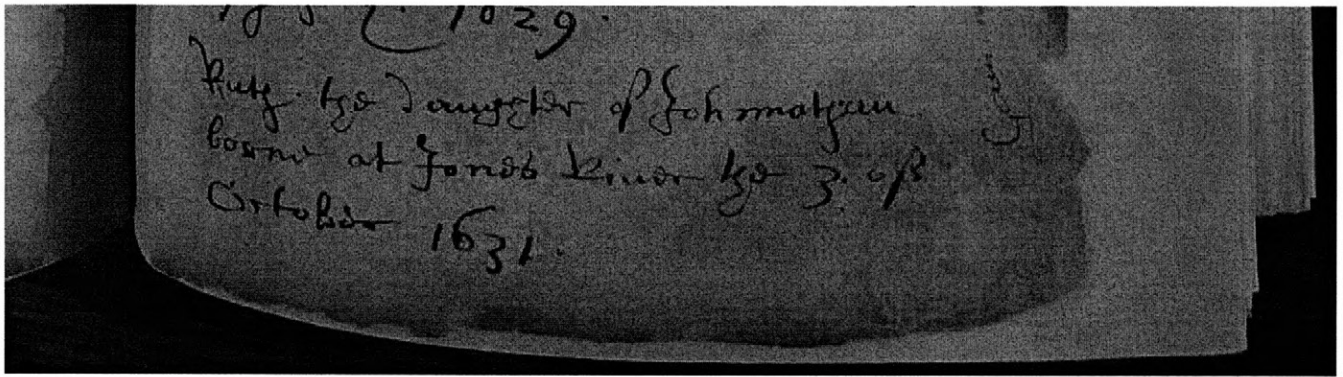 1629.
Ruth the Daughter of Johnnathan
borne at Jones River the 3. of
October 1631.